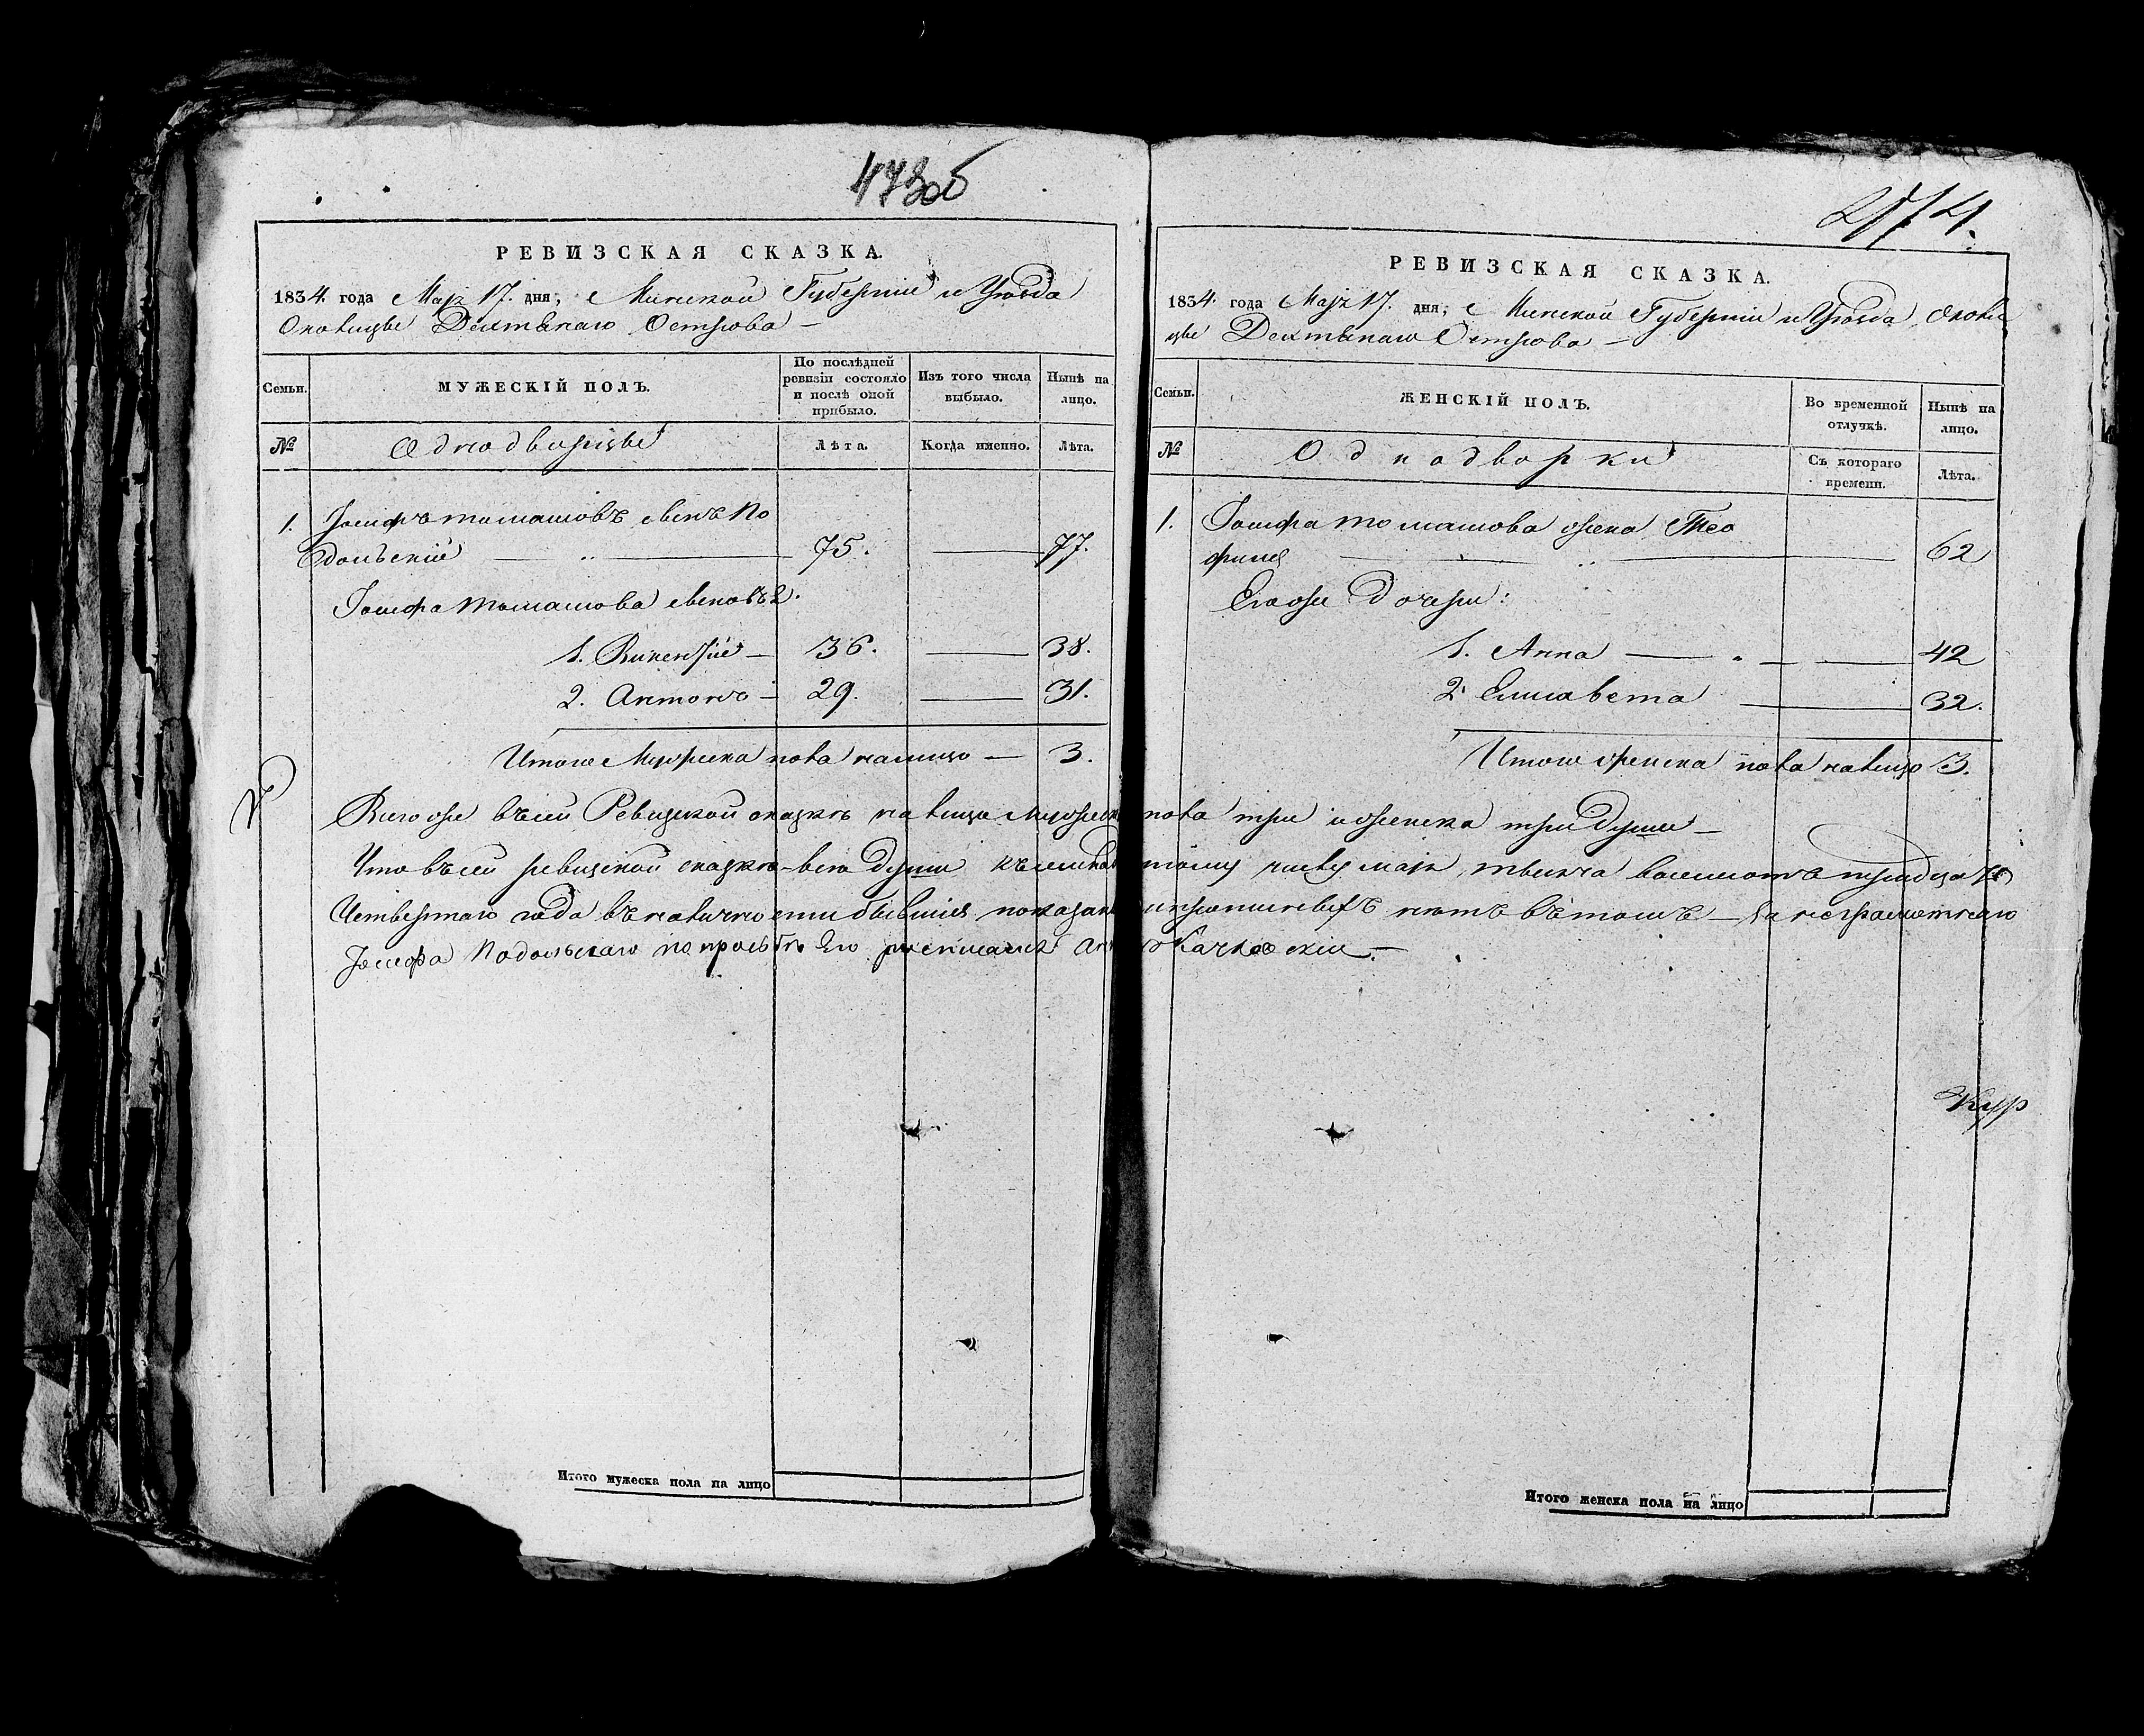 473об
РЕВИЗСКАЯ СКАЗКА.
1834. года Маія 17. дня, Минской Губерніи и Уѣзда
Околицы Острова —
Семьи.
МУЖЕСКІЙ ПОЛЪ.
По послѣдней ревизіи состояло и послѣ оной прибыло.
Изъ того числа выбыло.
Нынѣ на лицо.
№
Однодворцы
Лѣта.
Когда именно.
Лѣта.
1. Іосифъ Томашовъ сынъ По
дольскій — 75. — 77.
Іосифа Томашова сыновъ 2.
1. Викентій — 36. — 38.
2. Антонъ — 29. — 31.
Итого Мужеска пола налицо — 3.
474.
РЕВИЗСКАЯ СКАЗКА.
1834. года Маія 17. дня, Минской Губерніи и Уѣзда Околи
цы Острова —
Семьи.
ЖЕНСКІЙ ПОЛЪ.
Во временной отлучкѣ.
Нынѣ на лицо.
№
Однодворки
Съ котораго времени.
Лѣта.
1. Іосифа Томашова жена Тео
филя — 62
Егоже Дочери:
1. Анна — 42
2. Елисавета — 32.
Итого женска пола налицо 3.
Всего въсей Ревизской сказкѣ налицо Мужеска пола три и женска три души —
Что въсей ревизской сказкѣ всѣ души къ числу маія тысяча восемсотъ тридцать
Четвертаго года въ наличности бывшія показаны и прописныхъ нѣтъ вътомъ — За неграмотнаго
Іосифа Подольскаго по прозьбѣ Его росписался —
Итого мужеска пола на лицо
Итого женска пола на лицо